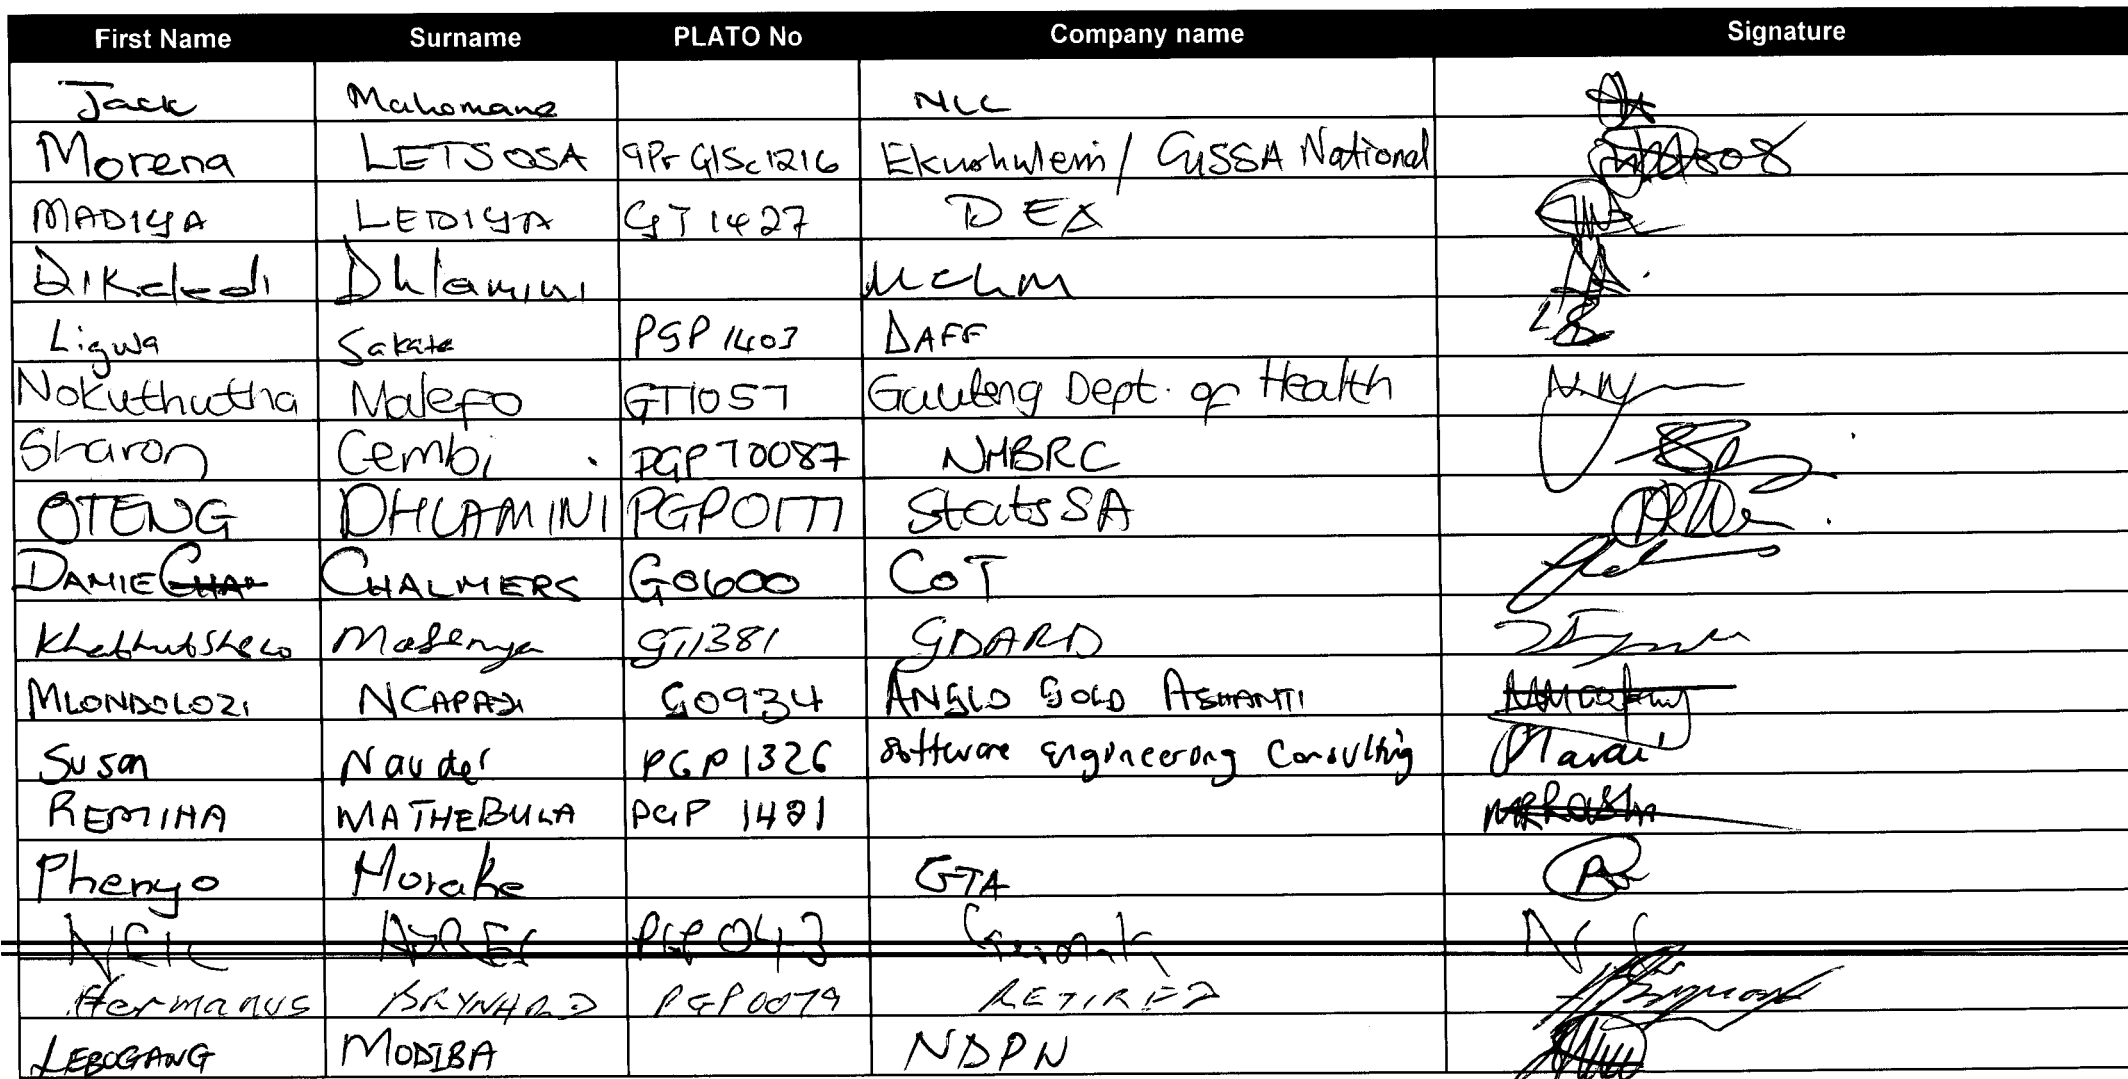 First Name Surname PLATO No Company name Signature
Jack Mahomane NLC
Morena LETSOSA GPrGISc1216 Ekurhuleni / GISSA National
MADIYA LEDIYA GT1427 DEA
Dikeledi Dhlamini
Ligwa Sakata PGP1403 DAFF
Nokuthutha Malefo GT1057 Gauteng Dept. of Health
Sharon Cembi PGPT0087 NHBRC
OTENG DHLAMINI PGP0177 StatsSA
DANIE CHALMERS G0600 CoT
Masenya GT1381 GDARD
MLONDOLOZI NCAPAYI G0934 ANGLO GOLD ASHANTI
Susan Naude PGP1326 Software Engineering Consulting
MATHEBULA PGP
Phenyo Morake GTA
NEIL AYRES PGP043
Hermanus BRYNARD PGP0079 RETIRED
LEBOGANG MODIBA NDPN